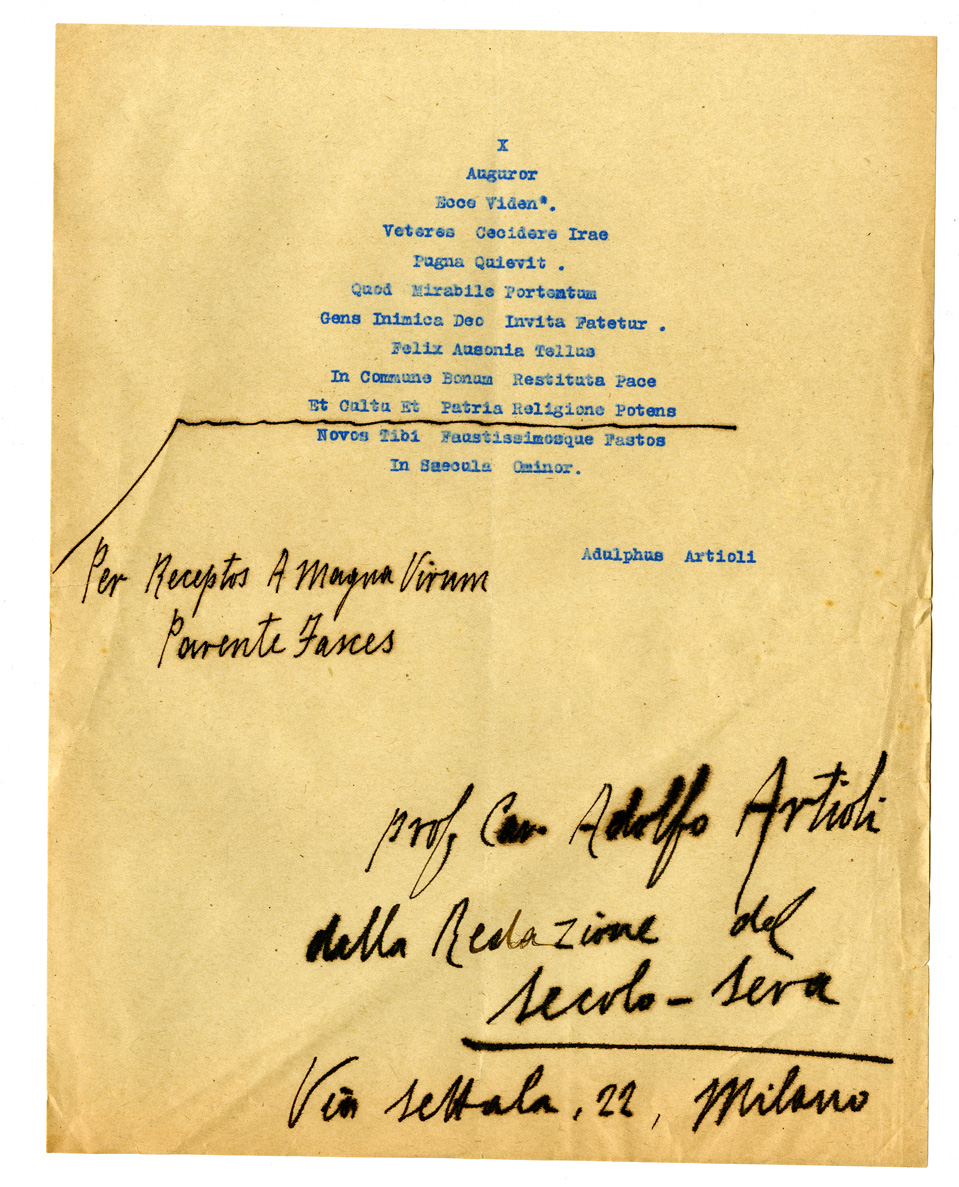 X
Auguror
Ecce Viden*.
Veteres Cecidere Irae
Pugna Quievit .
Quod Mirabile Portentum
Gens Inimica Deo Invita Fatetur .
Felix Ausonia Tellus
In Commune Bonum Restituta Pace
Et Cultu Et Patria Religione Potens
Novos Tibi Faustissimosque Fastos
In Saecula Ominor.
Adulphus Artioli
Per Receptos A Magna Virum
Parente Fasces
prof. Cav. Adolfo Artioli
della Redazione del
secolo - sera
Via Settala , 22 , Milano